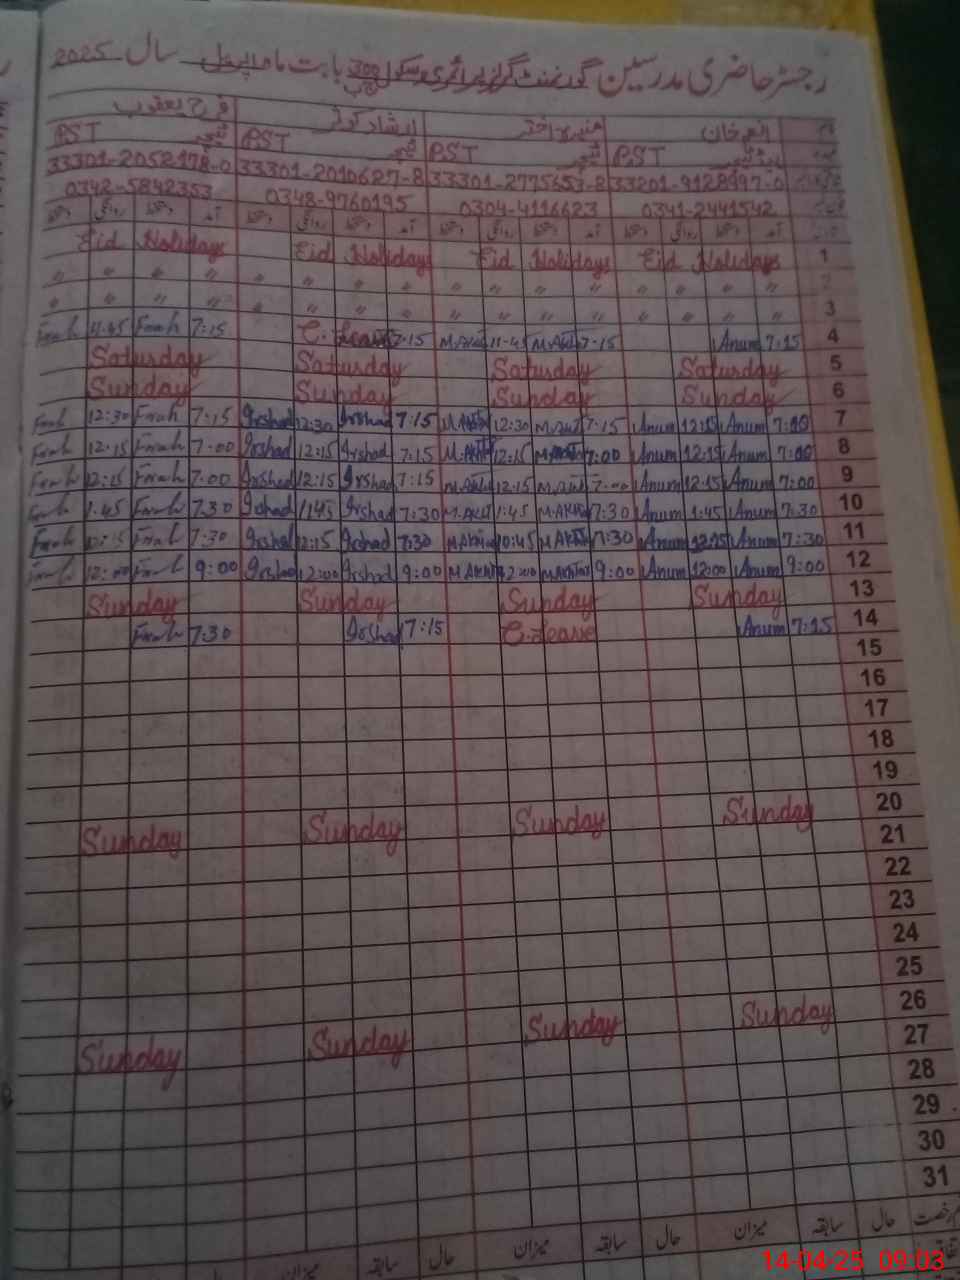 رجسٹر حاضری مدرسین گورنمنٹ گرلز پرائمری سکول 300 ج ب بابت ماہ اپریل سال 2025
انعم خان منیرہ اختر ارشاد کوثر فرح یعقوب
PST PST PST PST
33301-2052178-0 33301-2010627-8 33301-2775653-2 33201-9128997-0
0342-5842353 0348-9760195 0304-4116623 0341-2441542
آمد دستخط روانگی دستخط آمد دستخط روانگی دستخط آمد دستخط روانگی دستخط آمد دستخط روانگی دستخط
Eid Holidays Eid Holidays Eid Holidays Eid Holidays 1
〃 〃 〃 〃 〃 〃 〃 〃 〃 〃 〃 〃 〃 〃 〃 2
〃 〃 〃 〃 〃 〃 〃 〃 〃 〃 〃 〃 〃 〃 〃 3
Farah 11:45 Farah 7:15 C. Leave 7:15 M.Akht 11-45 M.Akht 7-15 Anum 7:15 4
Saturday Saturday Saturday Saturday 5
Sunday Sunday Sunday Sunday 6
Farah 12:30 Farah 7:15 Irshad 12:30 Irshad 7:15 M.Akht 12:30 M.Akht 7-15 Anum 12:15 Anum 7:00 7
Farah 12:15 Farah 7:00 Irshad 12:15 Irshad 7:15 M.Akht 12:15 M.Akht 7:00 Anum 12:15 Anum 7:00 8
Farah 12:15 Farah 7:00 Irshad 12:15 Irshad 7:15 M.Akht 12:15 M.Akht 7:00 Anum 12:15 Anum 7:00 9
Farah 1:45 Farah 7:30 Irshad 1:45 Irshad 7:30 M.Akht 1:45 M.Akht 7:30 Anum 1:45 Anum 7:30 10
Farah 12:15 Farah 7:30 Irshad 12:15 Irshad 7:30 M.Akhtar 10:45 M.Akht 7:30 Anum 12:15 Anum 7:30 11
Farah 12:00 Farah 9:00 Irshad 12:00 Irshad 9:00 M.Akhtar 12:00 M.Akhtar 9:00 Anum 12:00 Anum 9:00 12
Sunday Sunday Sunday Sunday 13
Farah 7:30 Irshad 7:15 C.Leave Anum 7:15 14
15
16
17
18
19
Sunday Sunday Sunday Sunday 20
21
22
23
24
25
26
Sunday Sunday Sunday Sunday 27
28
29
30
31
رخصت حال سابقہ میزان حال سابقہ میزان حال سابقہ میزان
14-04-25 09:03